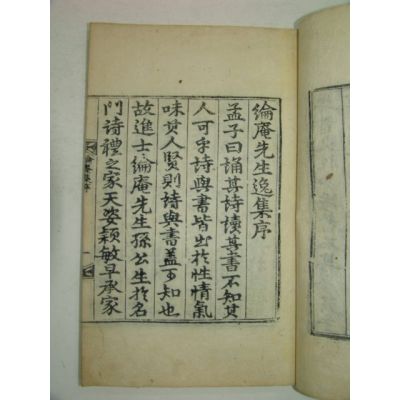 綸庵先生逸集序
孟子曰誦其詩讀其書不知其
人可乎詩與書皆出於性情氣
味其人賢則詩與書盖可知也
故進士綸庵先生孫公生於名
門詩禮之家天姿穎敏早承家